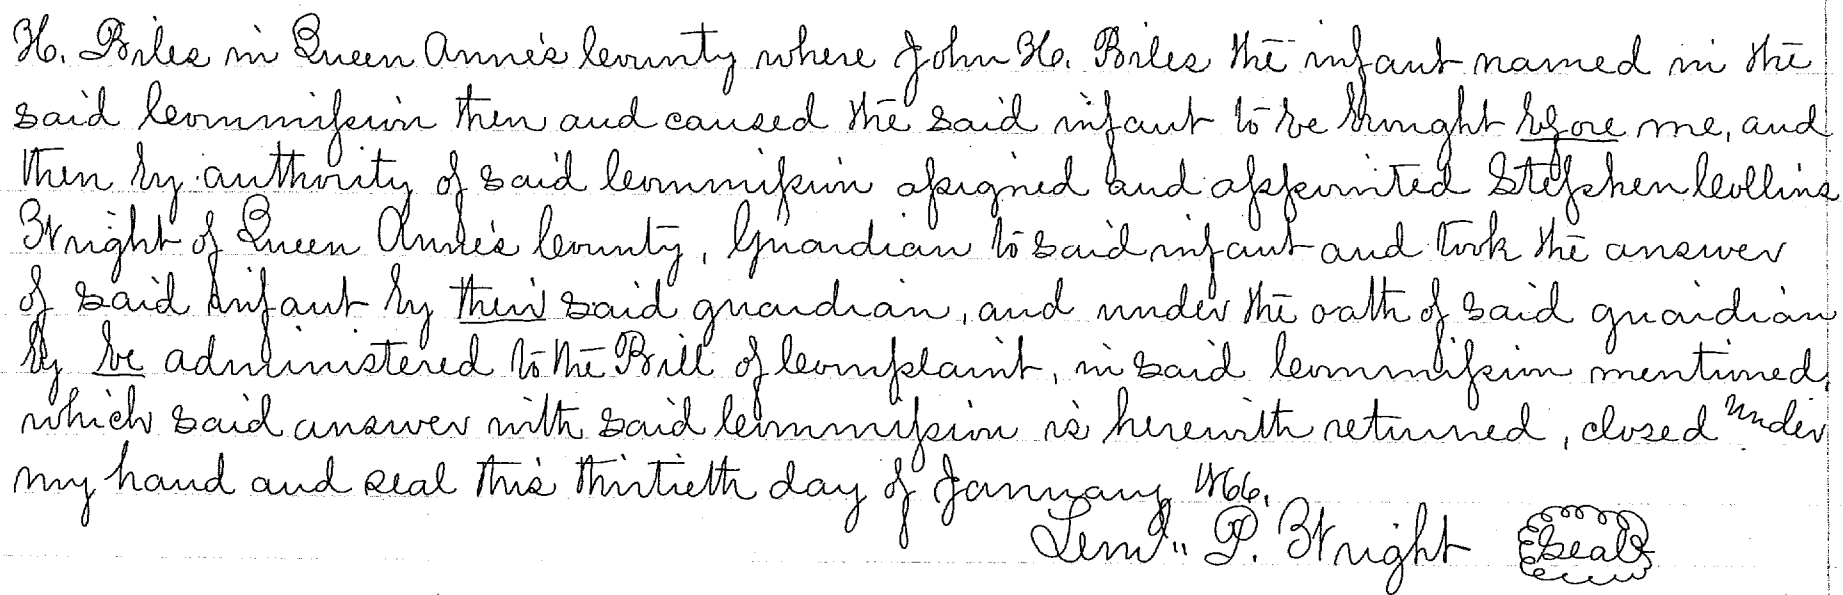 H. Biles in Queen Anne's County where John H. Biles the infant named in the
said Commission then and caused the said infant to be brought before me, and
then by authority of said Commission assigned and appointed Stephen Collins
Wright of Queen Anne's County, Guardian to said infant and took the answer
of said infant by their said guardian, and under the oath of said guardian
by be administered to the Bill of Complaint, in said Commission mentioned,
which said answer with said Commission is herewith returned, closed under
my hand and seal this thirtieth day of January 1866.
Leml" P. Wright Seal